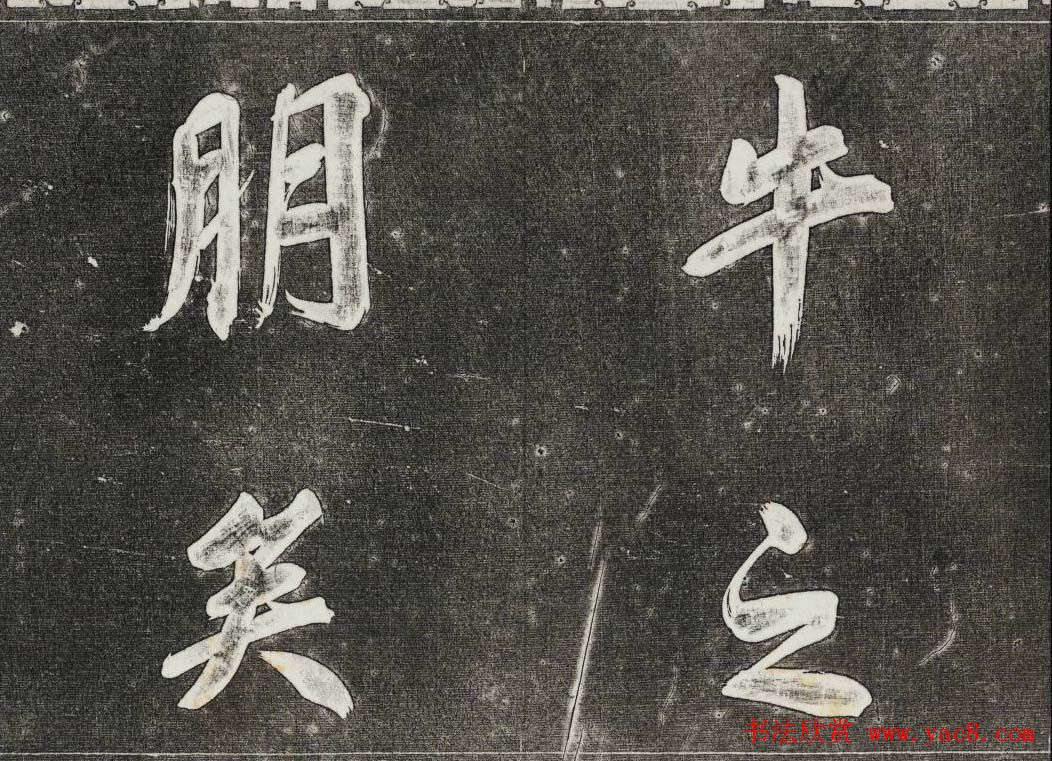 牛之
朋矣
书法欣赏 www.yac8.com